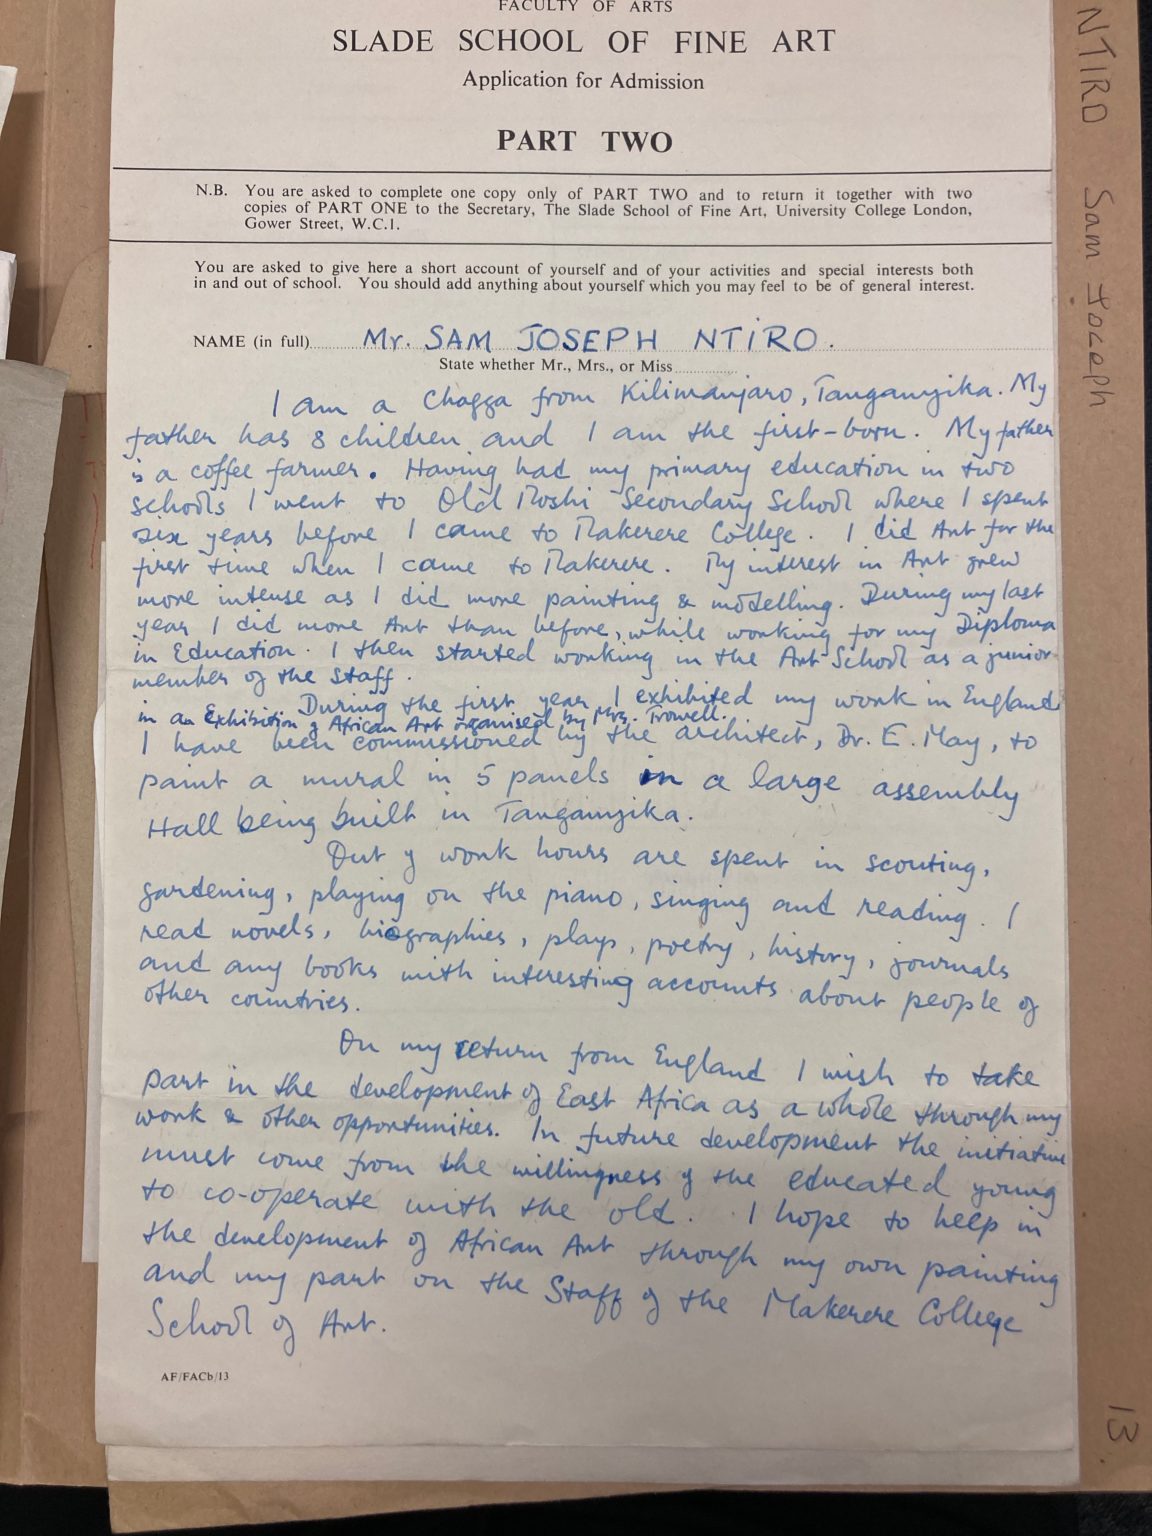 FACULTY OF ARTS
SLADE SCHOOL OF FINE ART
Application for Admission
PART TWO
N.B. You are asked to complete one copy only of PART TWO and to return it together with two
copies of PART ONE to the Secretary, The Slade School of Fine Art, University College London,
Gower Street, W.C.1.
You are asked to give here a short account of yourself and of your activities and special interests both
in and out of school. You should add anything about yourself which you may feel to be of general interest.
NAME (in full) Mr. SAM JOSEPH NTIRO.
State whether Mr., Mrs., or Miss
I am a Chagga from Kilimanjaro, Tanganyika. My
father has 8 children and I am the first-born. My father
is a coffee farmer. Having had my primary education in two
schools I went to Old Moshi Secondary School where I spent
six years before I came to Makerere College. I did Art for the
first time when I came to Makerere. My interest in Art grew
more intense as I did more painting & modelling. During my last
year I did more Art than before, while working for my Diploma
in Education. I then started working in the Art School as a junior
member of the staff.
During the first year I exhibited my work in England
in an Exhibition of African Art organised by Mrs. Trowell.
I have been commissioned by the architect, Dr. E. May, to
paint a mural in 5 panels in a large assembly
Hall being built in Tanganyika.
Out of work hours are spent in scouting,
gardening, playing on the piano, singing and reading. I
read novels, biographies, plays, poetry, history, journals
and any books with interesting accounts about people of
other countries.
On my return from England I wish to take
part in the development of East Africa as a whole through my
work & other opportunities. In future development the initiative
must come from the willingness of the educated young
to co-operate with the old. I hope to help in
the development of African Art through my own painting
and my part on the Staff of the Makerere College
School of Art.
AF/FACb/13
NTIRO Sam Joseph
13